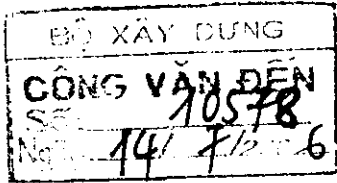 BỘ XÂY DỰNG
CÔNG VĂN ĐẾN
Số 10578
14/ 7/ 6